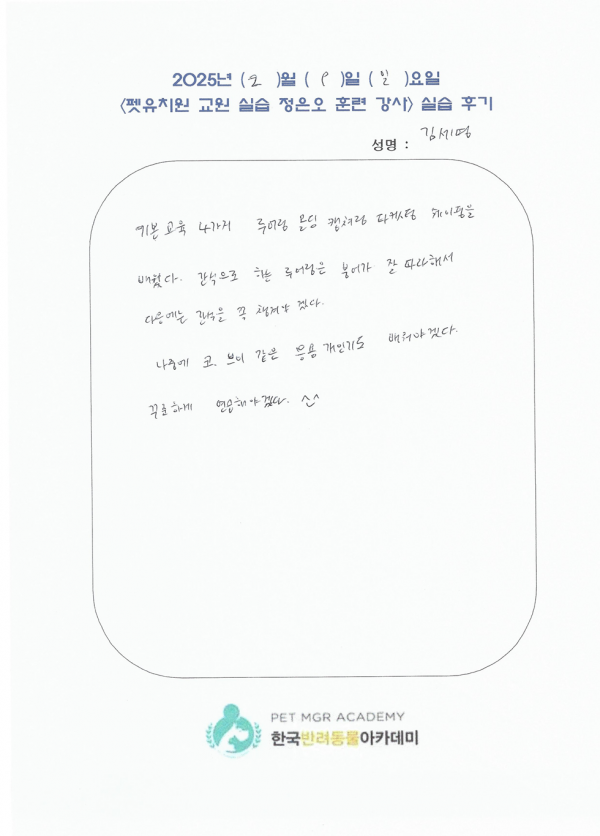 2025년 (2)월 (9)일 (일)요일
<펫유치원 교원 실습 정은오 훈련 강사> 실습 후기
성명 : 김세명
기본교육 4가지 루어링 몰딩 캡쳐링 타케팅 쉐이핑을
배웠다. 간식으로 하는 루어링은 붕어가 잘 따라해서
다음에는 간식을 꼭 챙겨야 겠다.
나중에 코, 브이 같은 응용 개인기도 배워야겠다.
꾸준하게 연습해야겠다. ^^
PET MGR ACADEMY
한국반려동물아카데미